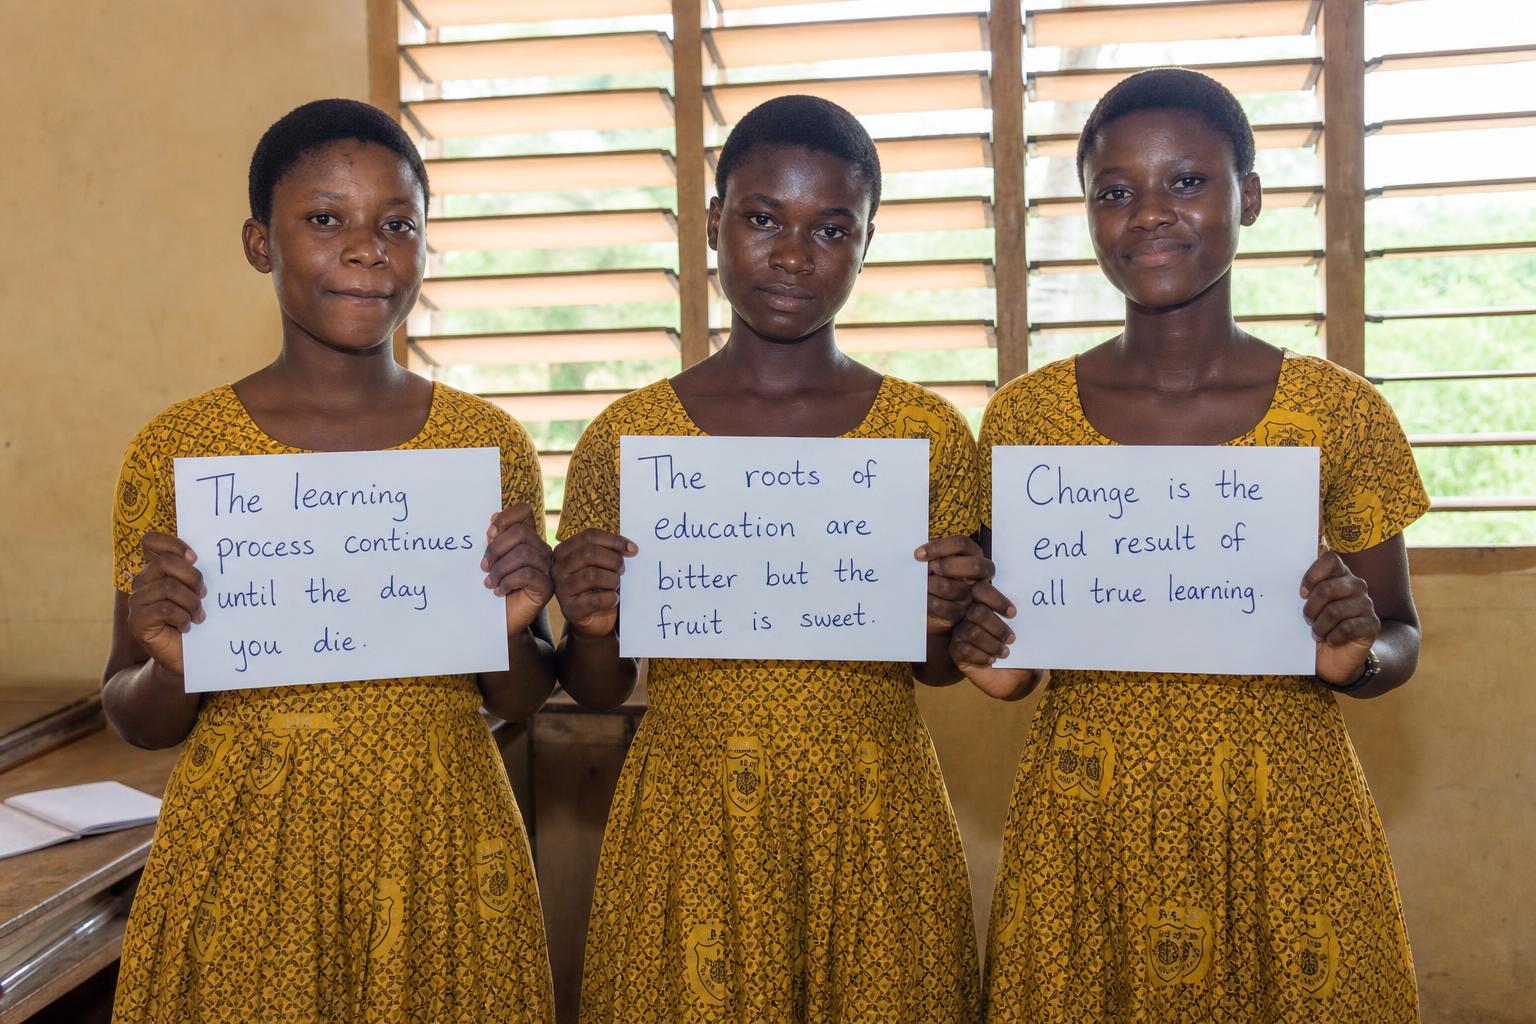 The learning
process continues
until the day
you die.
The roots of
education are
bitter but the
fruit is sweet.
Change is the
end result of
all true learning.